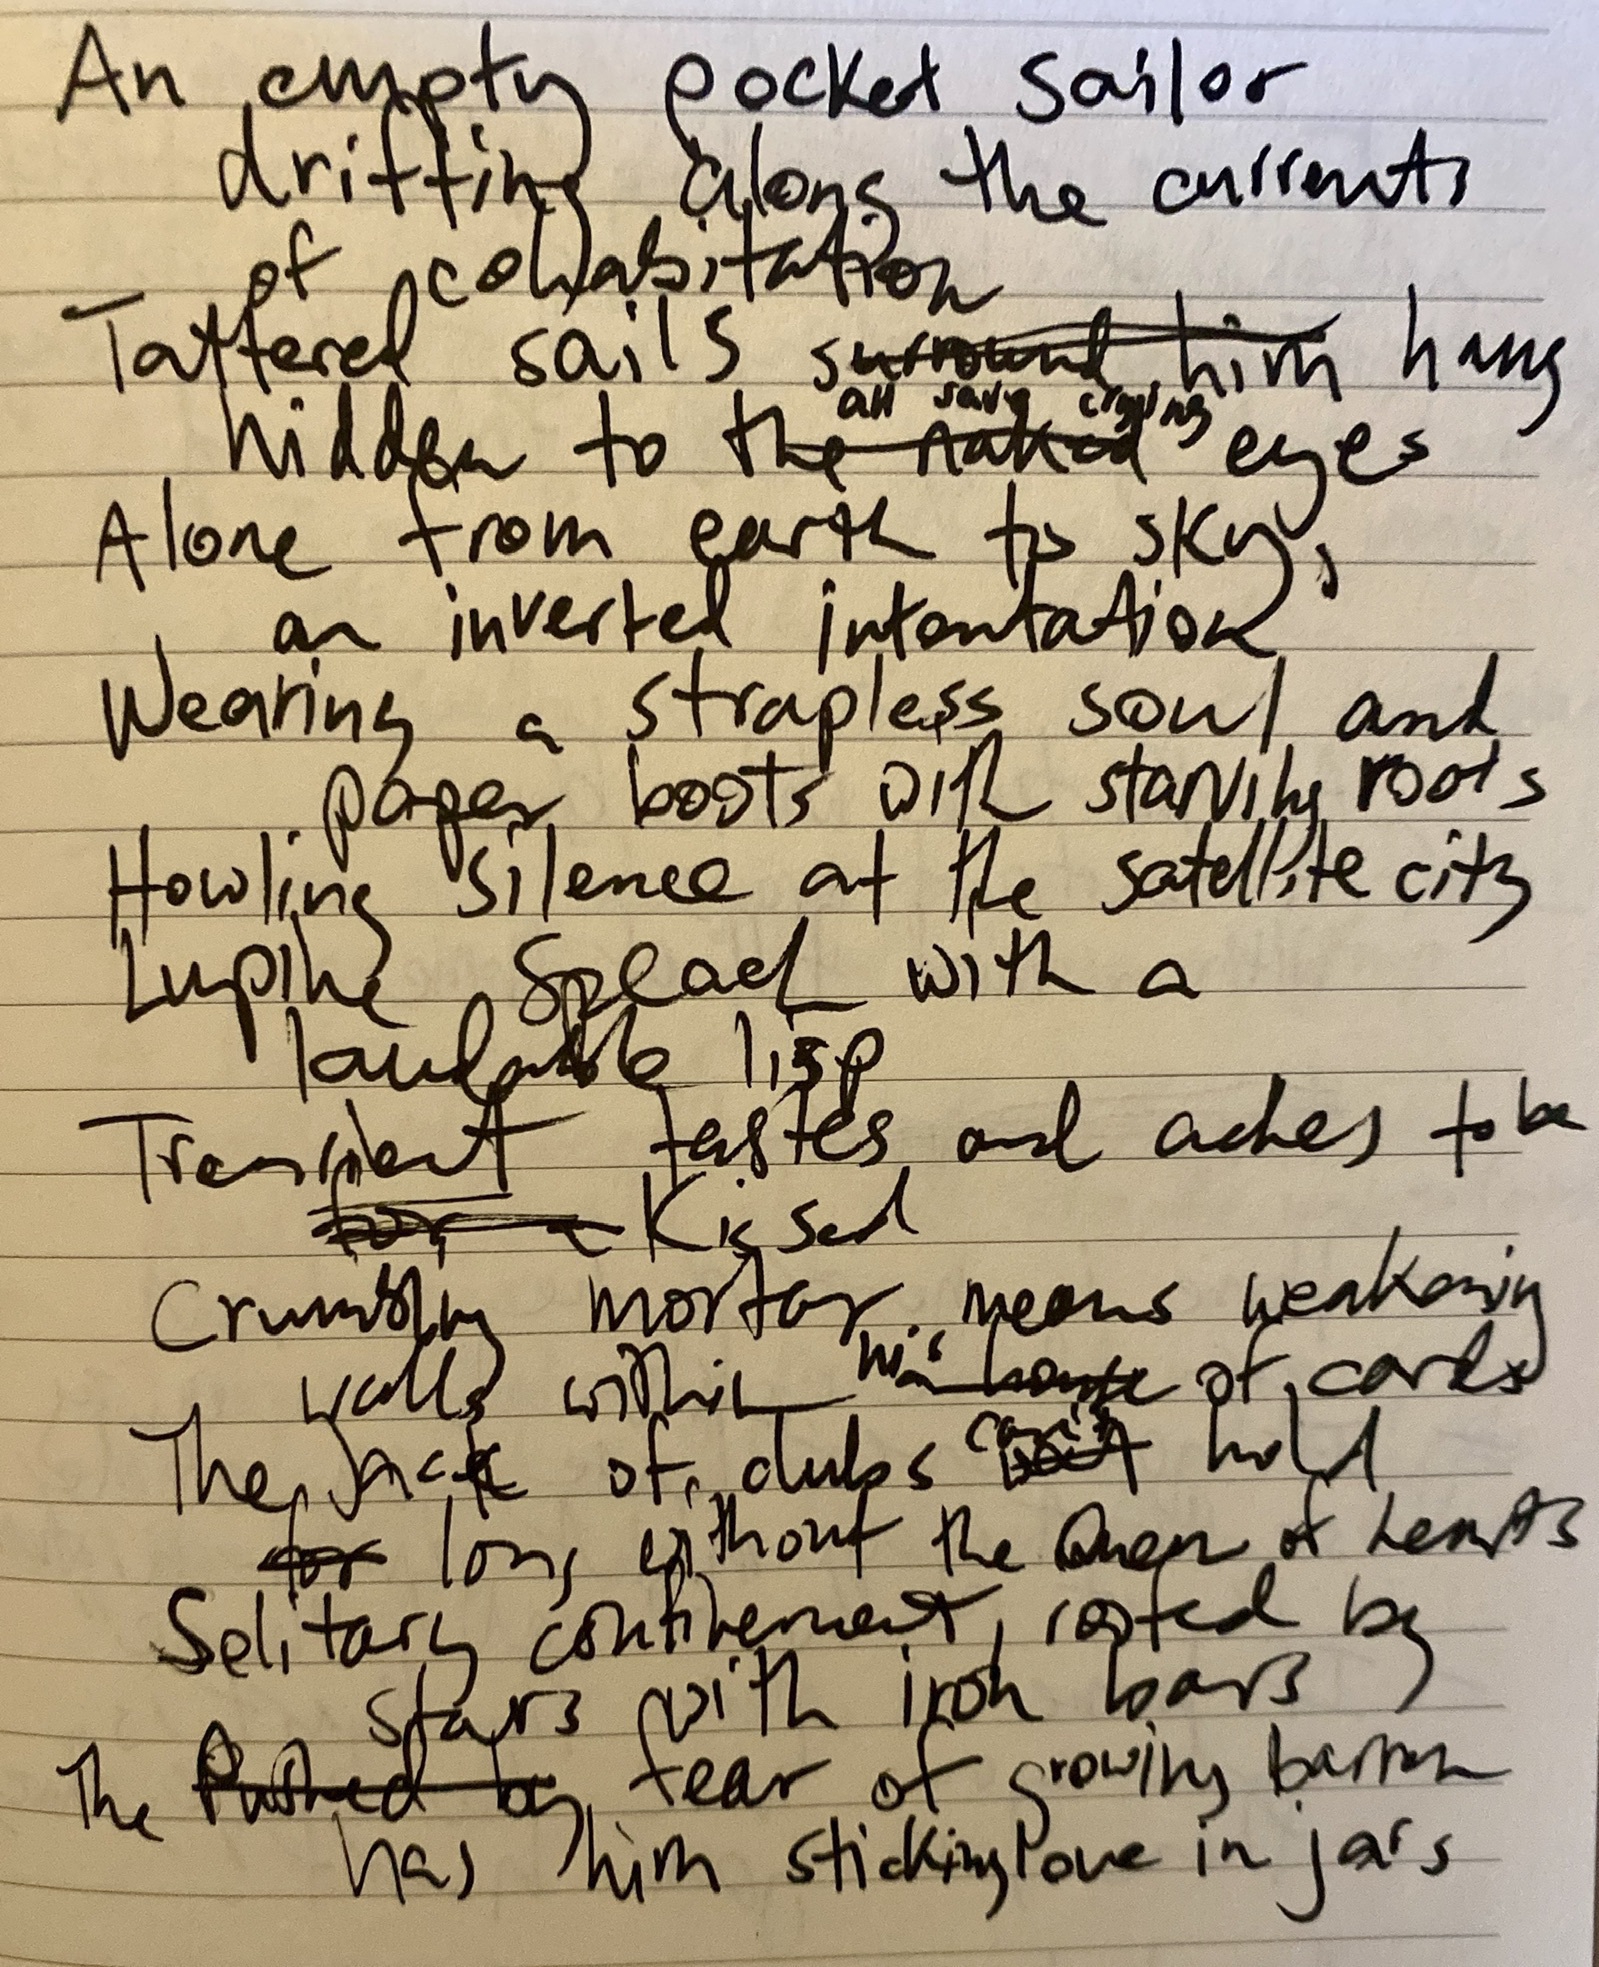 An empty pocket sailor
drifting along the currents
of cohabitation
Tattered sails surround him hang
all save crying
hidden to the naked eyes
Alone from earth to sky,
an inverted intentation
Wearing a strapless soul and
paper boots with starving roots
Howling silence at the satellite city
Lupine speach with a
laudable lisp
Transient tastes and aches to be
for a Kissed
Crumbling mortar means weakening
walls within his house of cards
The Jack of clubs can't hold
for long without the Queen of hearts
Solitary confinement, roofed by
stars with iron bars
The Pushed by fear of growing barren
has him sticking love in jars